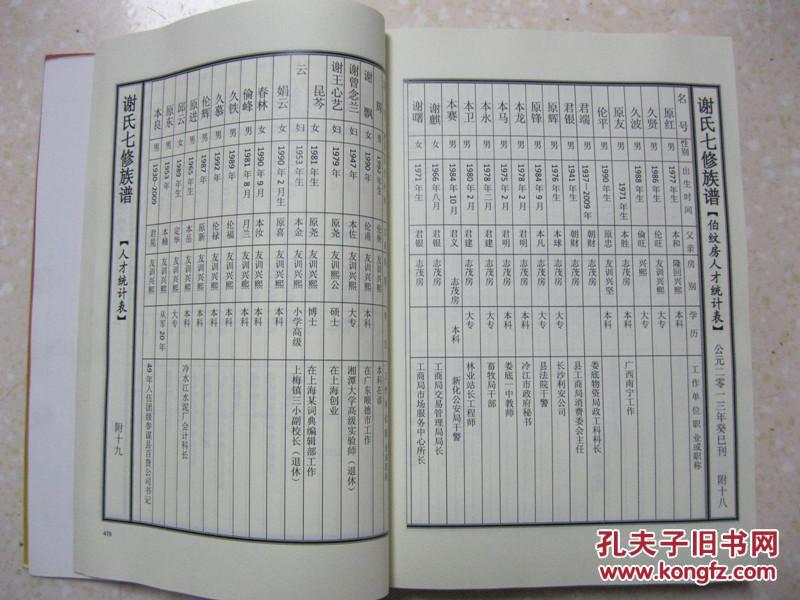 谢氏七修族谱【伯纹房人才统计表】公元二〇一三年癸巳刊 附十八
名号 性别 出生时间 父亲 房别 学历 工作单位职业或职称
原红 男 1977年生 本和 隆回兴熙 本科
久贤 男 1986年生 伦旺 友训兴熙 本科
久波 男 1988年生 倫旺 兴熙 大专
原友 1971年生 本胜 志茂房 广西南宁工作
伦平 男 1990年生 原忠 友训兴坚 本科
君端 男 1937-2009年 朝财 志茂房 娄底物资局政工科科长
君银 男 1941年生 朝财 志茂房 县工商局消费委会主任
原辉 男 1976年生 本球 志茂房 大专 长沙利安公司
原锋 男 1989年生 本凡 志茂房 大专 县法院干警
本龙 男 1978年2月 君明 志茂房 本科 冷江市政府秘书
本马 男 1978年2月 君明 志茂房 本科 娄底一中教师
本永 男 1978年二月 君建 志茂房 大专 畜牧局干部
本卫 男 1980年2月 君建 志茂房 大专 林业站长工程师
本赛 男 1984年10月 君义 志茂房 本科 新化公安局干警
谢麒 男 1966年八月 君银 志茂房 本科 工商局交易管理局局长
谢曙 女 1971年生 君银 志茂房 本科 工商局市场服务中心所长
谢飘 女 1990年 伦南 友训兴熙 本科 在广东顺德市工作
谢曾念兰 妇 1947年 本佐 友训兴熙 大专 湘潭大学高级实验师（退休）
谢王心艺 妇 1979年 原尧 友训熙公 硕士 在上海创业
昆苓 女 1981年生 原尧 友训兴熙 博士 在上海某词典编辑部工作
云 妇 1953年生 本金 友训兴熙 小学高级 上梅镇三小副校长（退休）
娟云 女 1990年2月生 原喜 友训兴熙 本科
春林 女 1990年9月 本汝 友训兴熙 本科
倫峰 男 1981年8月 月兰 友训兴熙 本科
久铁 男 1989年 伦福 友训兴熙 本科
久慕 男 1992年 伦禄 友训兴熙 本科
伦辉 男 1987年 原新 友训兴熙 本科
原进 男 1965年生 本岳 友训兴熙 大专
邱云 女 1989年生 定华 友训兴熙 大专 冷水江水泥厂会计科长
原东 男 1953年 本楠 友训兴熙 从军20年
本良 男 1930-2009 君晃 友训兴熙 49年入伍团级参谋县百货公司书记
谢氏七修族谱 【人才统计表】 附十九
孔夫子旧书网
www.kongfz.com